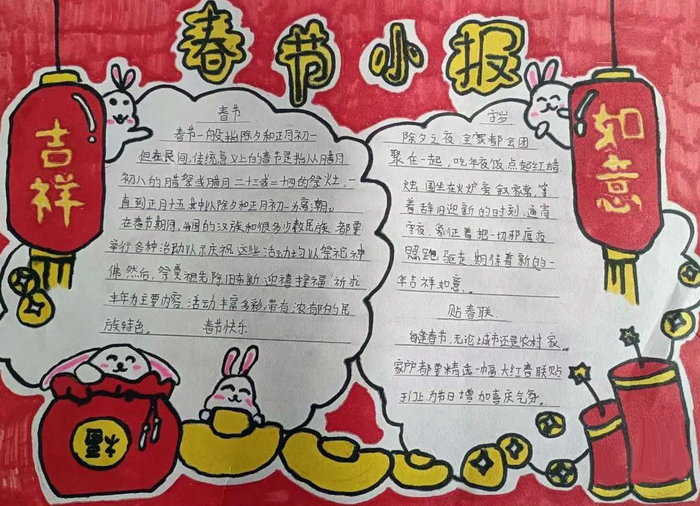 春节小报
吉祥
如意
春节
春节一般指除夕和正月初一
但在民间,传统意义上的春节是指从腊月
初八的腊祭或腊月二十三或二十四的祭灶,一
直到正月十五,其中以除夕和正月初一为高潮。
在春节期间,我国的汉族和很多少数民族都要
举行各种活动以示庆祝,这些活动均以祭祀神
佛,然后,祭奠祖先除旧布新迎禧接福、祈求
丰年为主要内容,活动丰富多彩,带有浓郁的民
族特色。 春节快乐
守岁
除夕之夜,全家都会团
聚在一起,吃年夜饭,点起红蜡
烛,围坐在火炉旁叙家常,等
着辞旧迎新的时刻,通宵
守夜,象征着把一切邪瘟疫
照跑驱走,期待着新的一
年吉祥如意。
贴春联
每逢春节,无论城市还是农村,家
家户户都要精选一幅大红春联贴
于门上,为节日增加喜庆气氛。
福